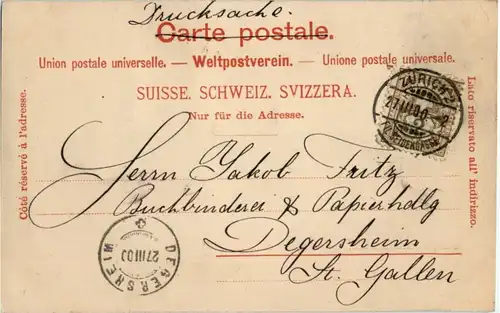 Drucksache.
Carte postale.
Union postale universelle. — Weltpostverein. — Unione postale universale.
SUISSE. SCHWEIZ. SVIZZERA.
Nur für die Adresse.
Côté réservé à l'adresse.
Lato riservato all' indirizzo.
ZÜRICH
27.III.00.
Herrn Jakob Fritz
Buchbinderei & Papierhdlg
Degersheim
St. Gallen
DEGERSHEIM
27 III 00